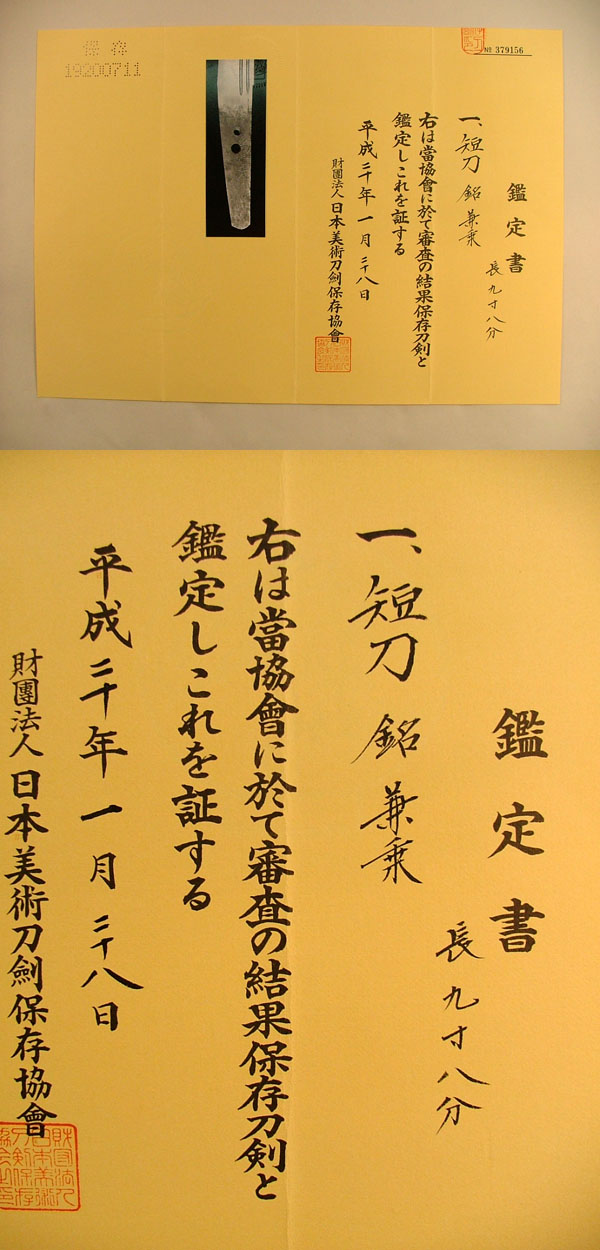 保存
19200711
№ 379156
鑑定書
長九寸八分
一、短刀 銘 兼乗
右は當協會に於て審査の結果保存刀剣と
鑑定しこれを証する
平成二十年一月二十八日
財團法人日本美術刀劍保存協會
鑑定書
長九寸八分
一、短刀 銘 兼乗
右は當協會に於て審査の結果保存刀剣と
鑑定しこれを証する
平成二十年一月二十八日
財團法人日本美術刀劍保存協會